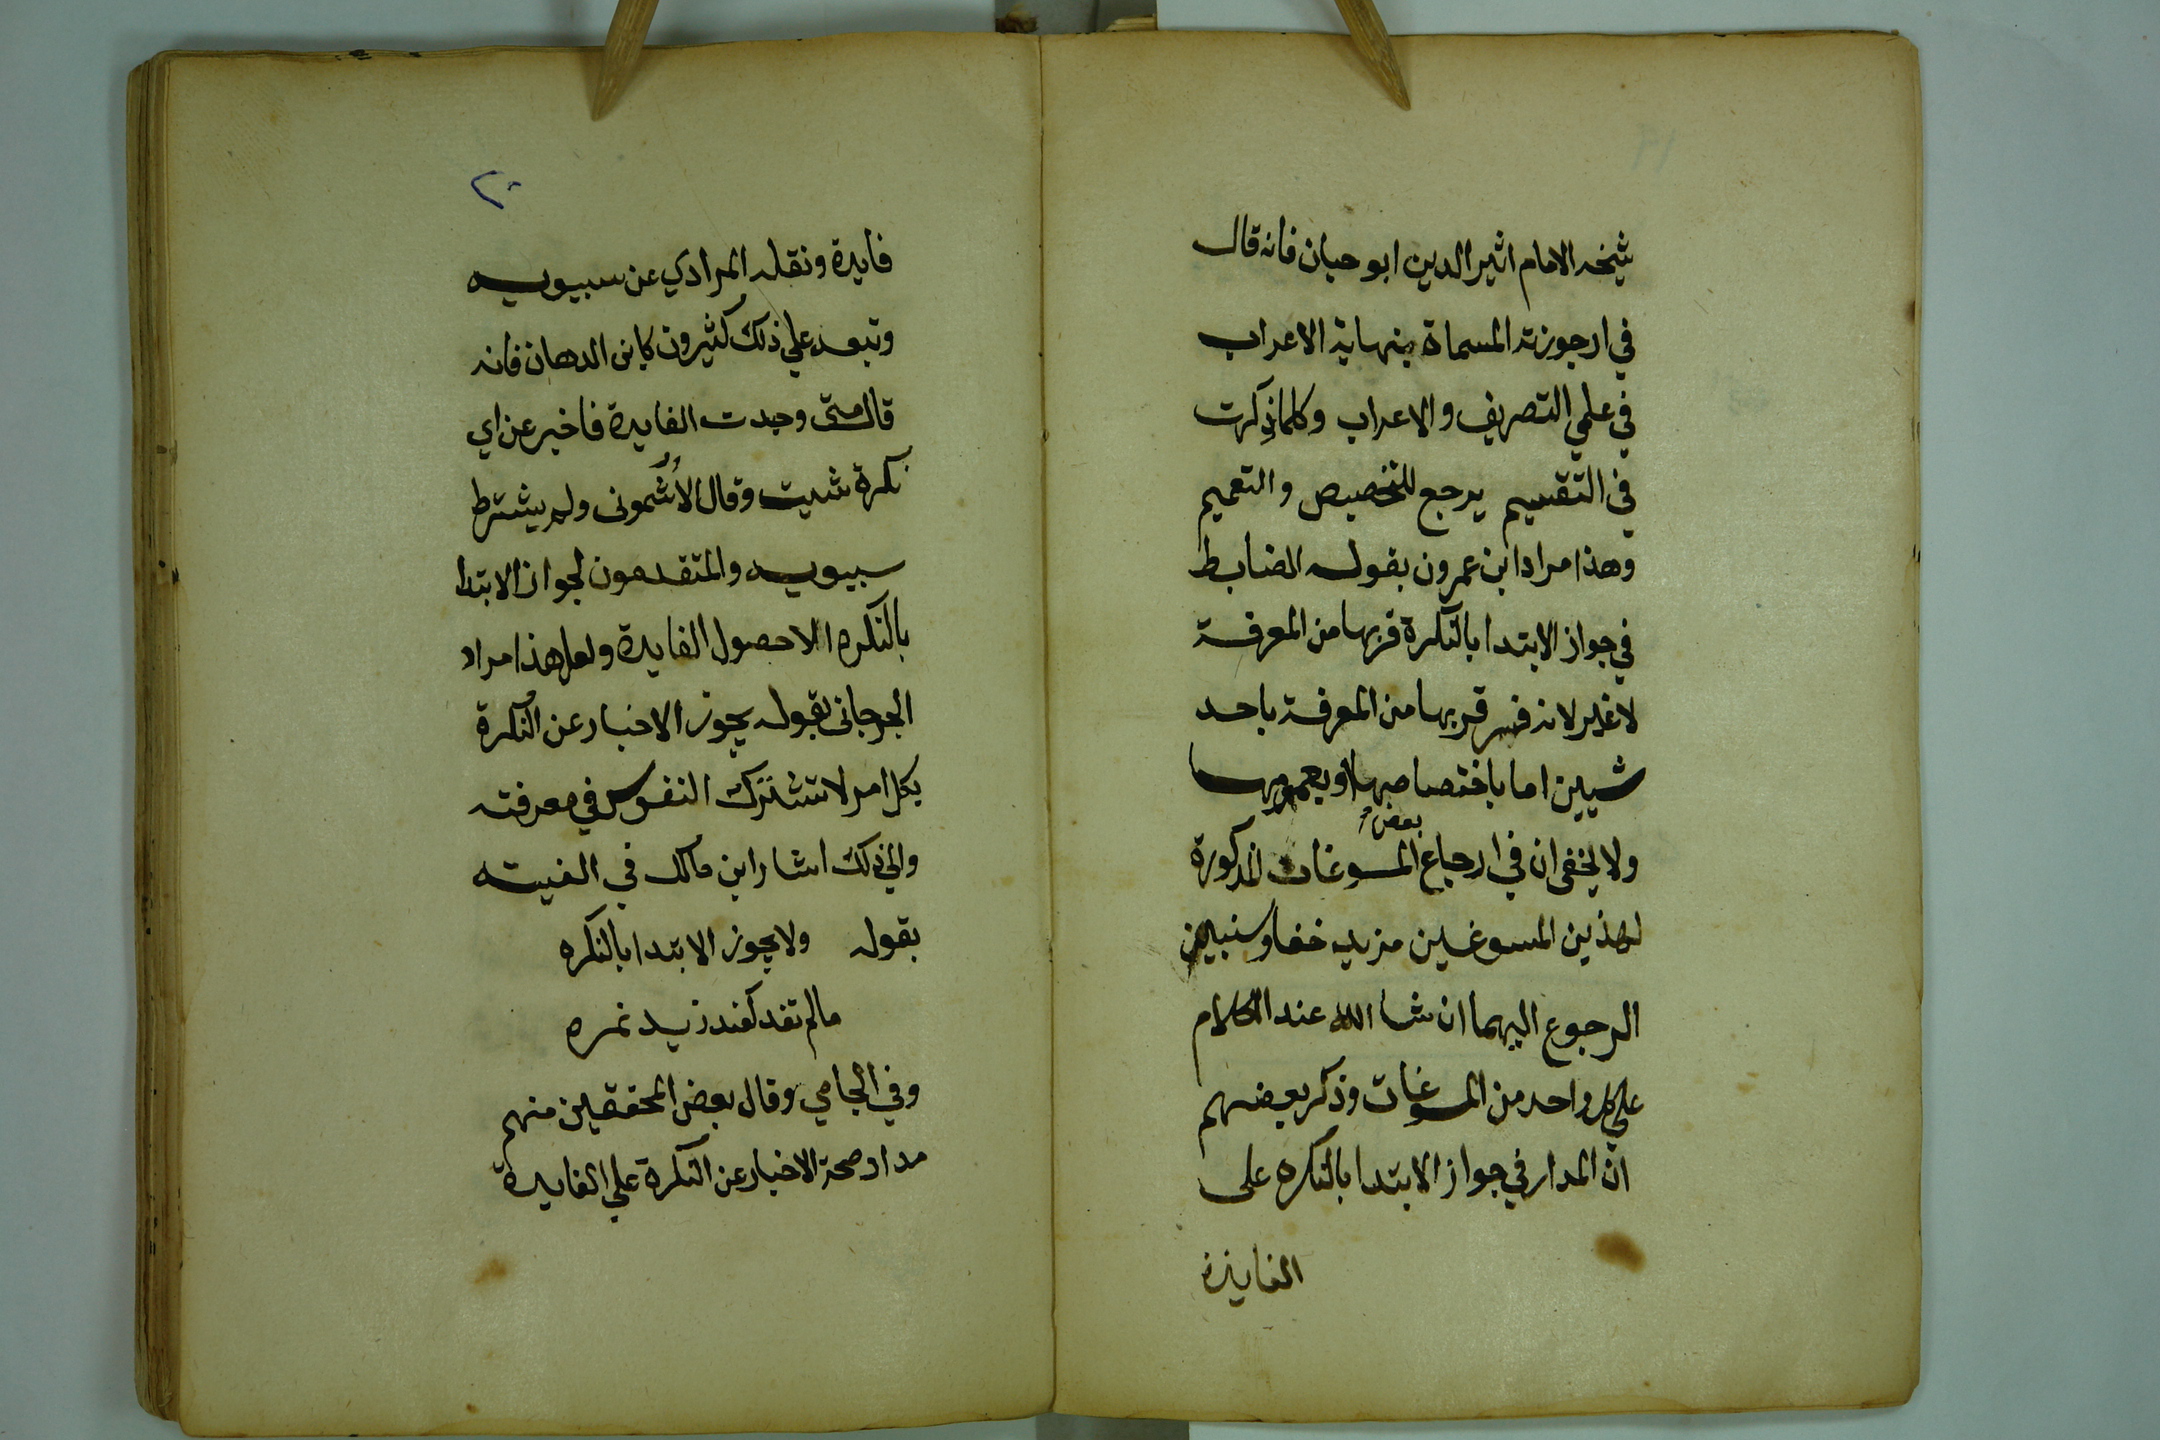 شيخه الامام اثير الدين ابو حيان فانه قال
في ارجوزته المسماة بنهاية الاعراب
في علمي التصريف والاعراب وكلما ذكرت
في التقسيم يرجع للتخصيص والتعميم
وهذا مراد ابن عمرون بقوله الضابط
في جواز الابتدا بالنكرة قربها من المعرفة
لا غير لانه فسر قربها من المعرفة باحد
شيين اما باختصاصها او بعمومها
ولا يخفي ان في ارجاع بعض المسوغات المذكورة
لهذين المسوغين مزيد خفا وسنبين
الرجوع اليهما ان شا الله عند الكلام
علي كل واحد من المسوغات وذكر بعضهم
ان المدار في جواز الابتدا بالنكره على
الفايدة
٢٠
فايدة ونقله المرادي عن سيبويه
وتبعه علي ذلك كثيرون كابن الدهان فانه
قال متى وجدت الفايدة فاخبر عن اي
نكرة شيت وقال الأُشموني ولم يشترط
سيبويه والمتقدمون لجواز الابتدا
بالنكره الا حصول الفايدة ولعل هذا مراد
الجرجاني بقوله يجوز الاخبار عن النكرة
بكل امر لا تشترك النفوس في معرفته
والي ذلك اشار ابن مالك في الفيته
بقوله ولا يجوز الابتدا بالنكره
مالم تفد كعند زيد نمره
وفي الجامي وقال بعض المحققين منهم
مدار صحة الاخبار عن النكرة علي الفايدة